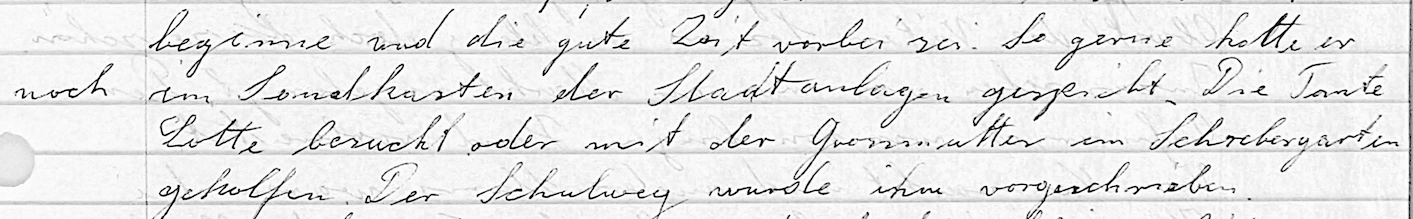 beginne und die gute Zeit vorbei sei. So gerne hatte er
noch im Sandkasten der Stadtanlagen gespielt. Die Tante
Lotte besucht oder mit der Grossmutter im Schrebergarten
geholfen. Der Schulweg wurde ihm vorgeschrieben